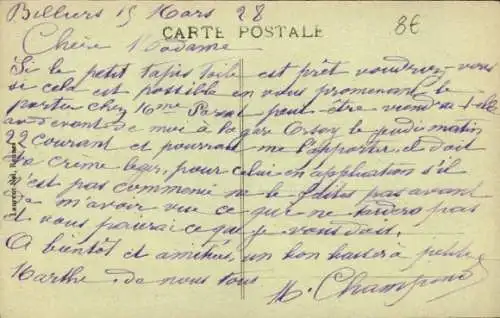 Billiers 15 Mars 28
8€
CARTE POSTALE
Chère Madame
Si le petit tapis toile est prêt voudriez vous
si cela est possible en vous promenant le
porter chez Mme peut être viendra t-elle
au devant de moi à la gare Orsay le jeudi matin
22 courant et pourrait me l'apporter, il doit
crème léger, pour celui en application s'il
n'est pas commencé ne le faites pas avant
de m'avoir vue ce que ne tardera pas
et vous paierai ce que je vous dois.
A bientôt et amitiés, un bon baiser à petite
Marthe, de nous tous
M. Champion